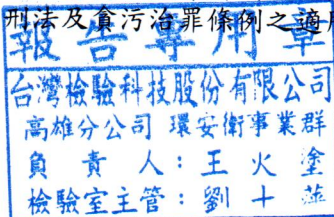 刑法及貪污治罪條例之適
報告專用章
台灣檢驗科技股份有限公司
高雄分公司 環安衛事業群
負責人：王火塗
檢驗室主管：劉十